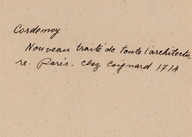 Cordemoy
Nouveau traité de toute l'architectu
re. Paris. chez Coignard 1714